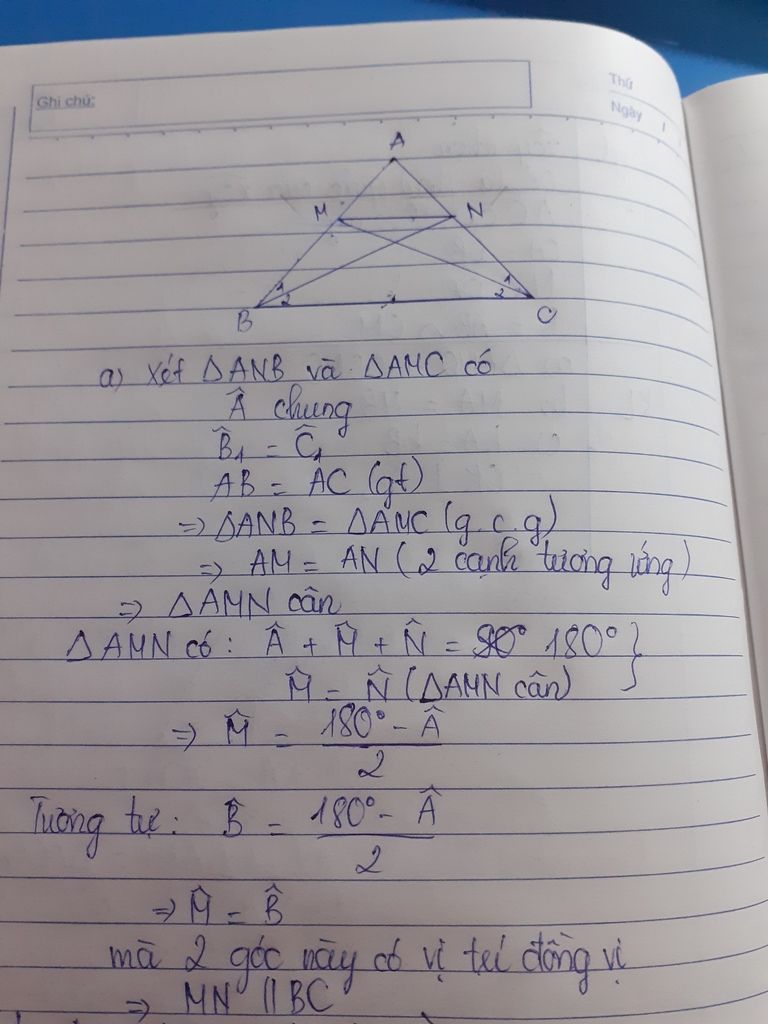 Ghi chú:
Thứ
Ngày /
A
M N
1 1
2 2
B C
a) Xét ΔANB và ΔAMC có
Â chung
B̂₁ = Ĉ₁
AB = AC (gt)
=> ΔANB = ΔAMC (g.c.g)
=> AM = AN (2 cạnh tương ứng)
=> ΔAMN cân
ΔAMN có: Â + M̂ + N̂ = 180° }
M̂ = N̂ (ΔAMN cân)
=> M̂ = (180° - Â) / 2
Tương tự: B̂ = (180° - Â) / 2
=> M̂ = B̂
mà 2 góc này có vị trí đồng vị
=> MN // BC